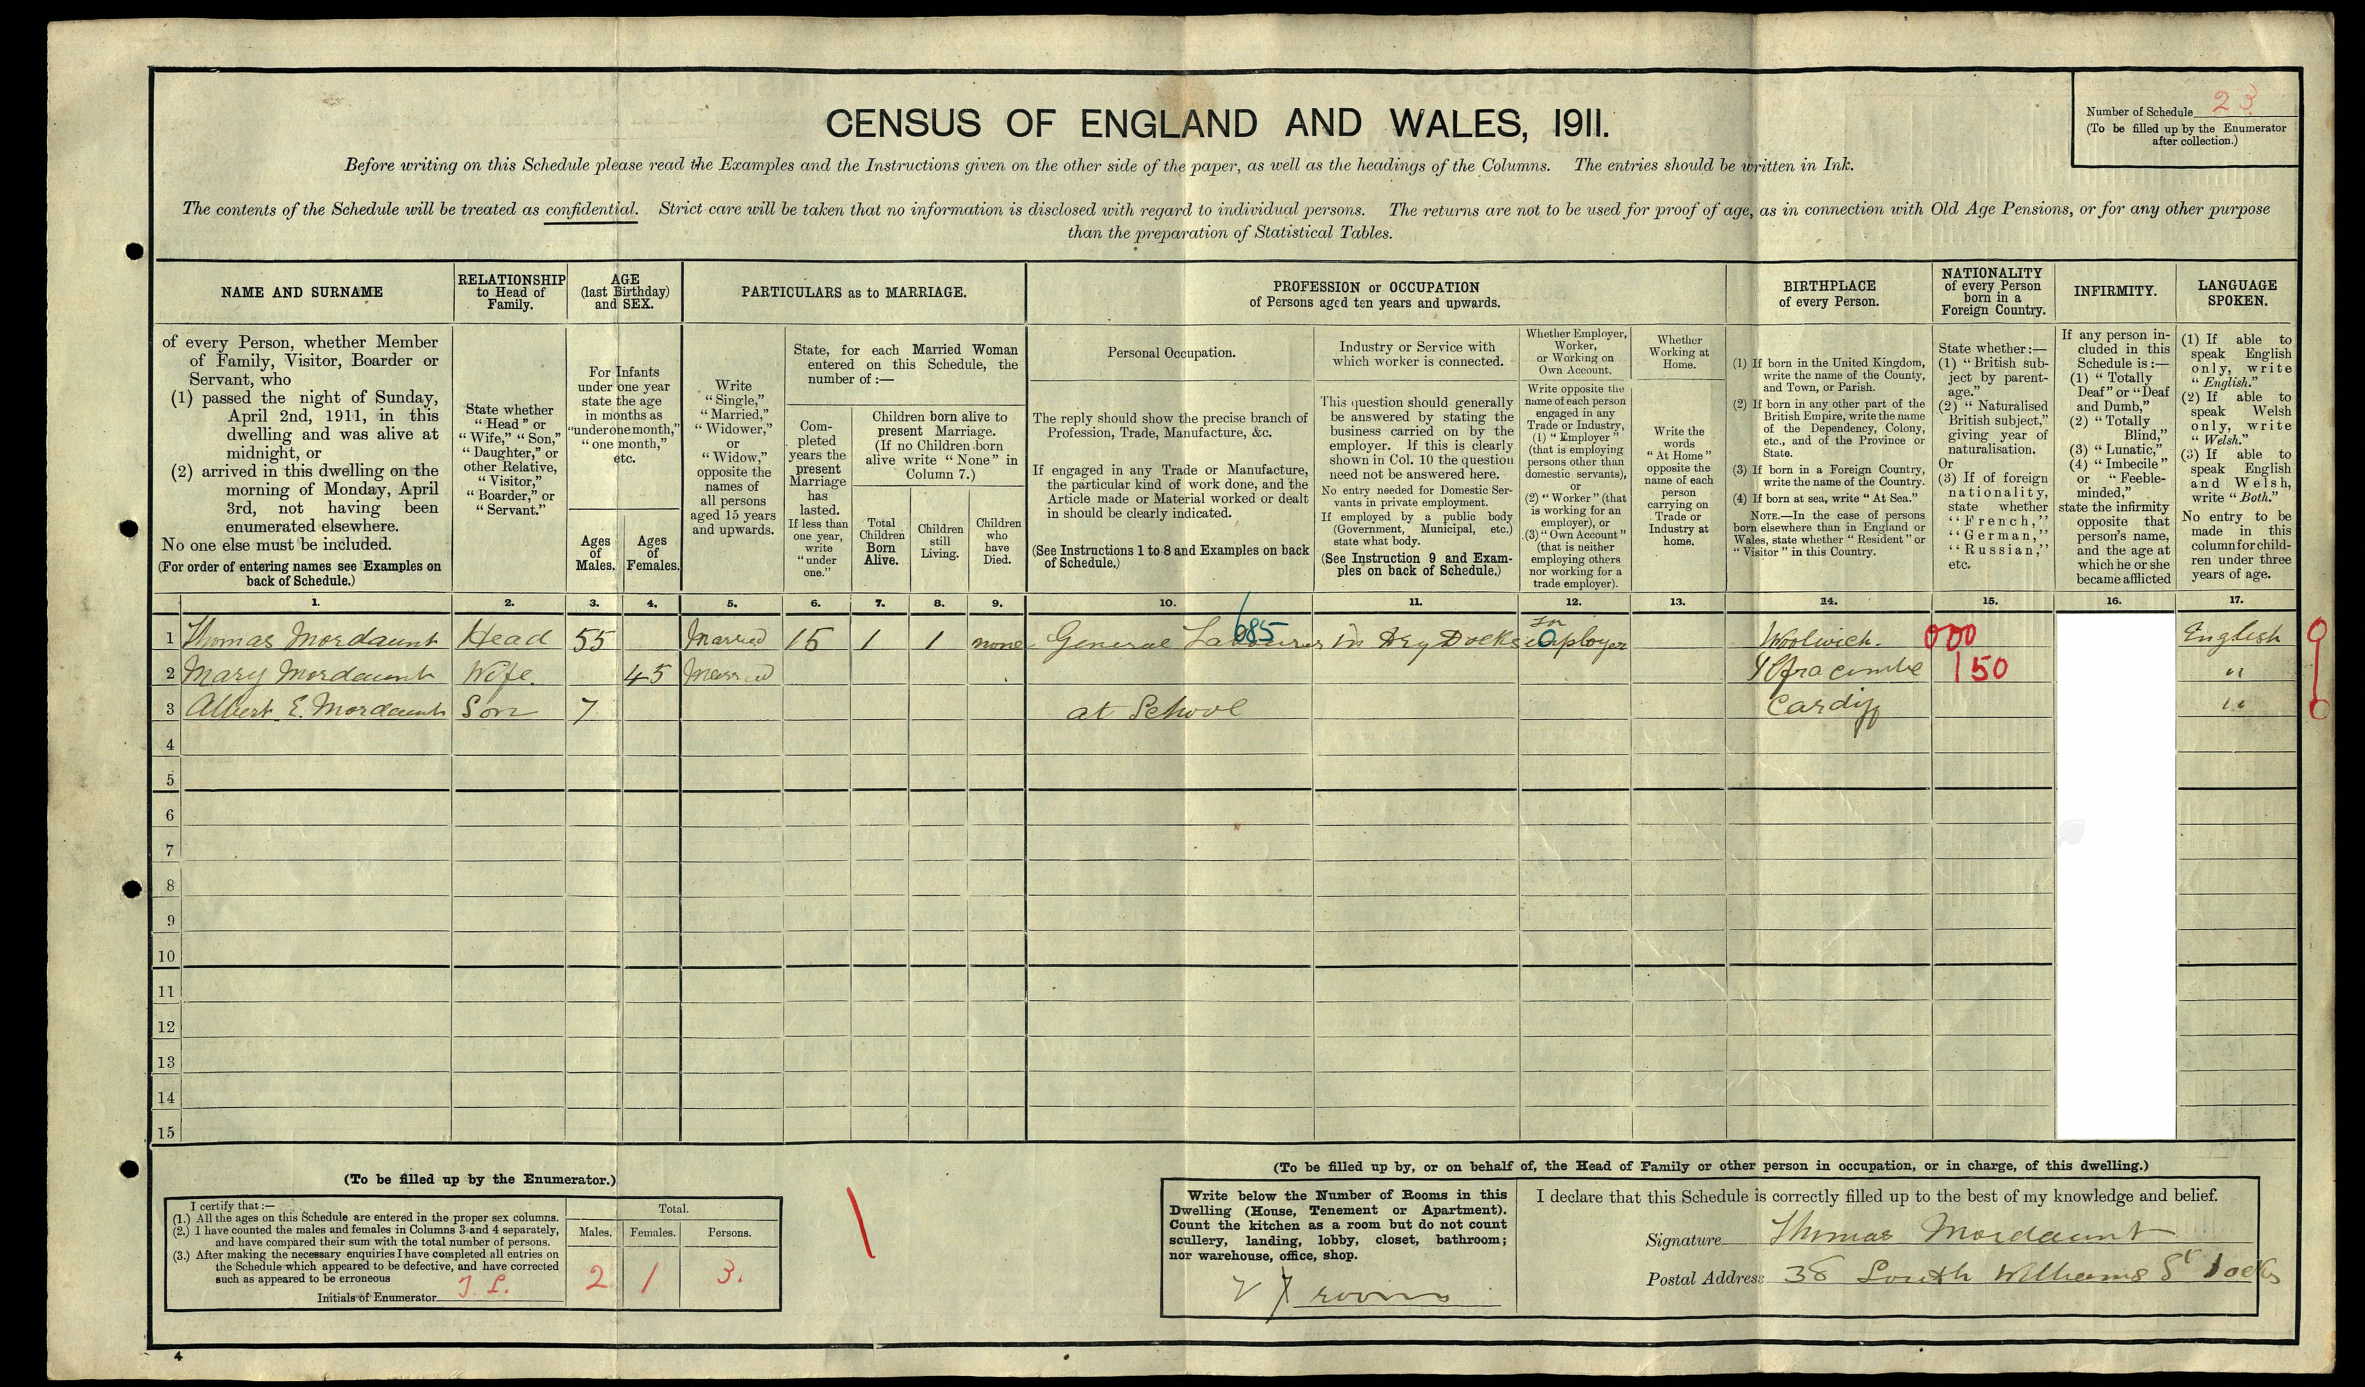 CENSUS OF ENGLAND AND WALES, 1911.
Number of Schedule 23
(To be filled up by the Enumerator
after collection.)
Before writing on this Schedule please read the Examples and the Instructions given on the other side of the paper, as well as the headings of the Columns. The entries should be written in Ink.
The contents of the Schedule will be treated as confidential. Strict care will be taken that no information is disclosed with regard to individual persons. The returns are not to be used for proof of age, as in connection with Old Age Pensions, or for any other purpose
than the preparation of Statistical Tables.
NAME AND SURNAME
of every Person, whether Member
of Family, Visitor, Boarder or
Servant, who
(1) passed the night of Sunday,
April 2nd, 1911, in this
dwelling and was alive at
midnight, or
(2) arrived in this dwelling on the
morning of Monday, April
3rd, not having been
enumerated elsewhere.
No one else must be included.
(For order of entering names see Examples on
back of Schedule.)
RELATIONSHIP
to Head of
Family.
State whether
"Head" or
"Wife," "Son,"
"Daughter," or
other Relative,
"Visitor,"
"Boarder," or
"Servant."
AGE
(last Birthday)
and SEX.
For Infants
under one year
state the age
in months as
"under one month,"
"one month,"
etc.
Ages
of
Males.
Ages
of
Females.
PARTICULARS as to MARRIAGE.
Write
"Single,"
"Married,"
"Widower,"
or
"Widow,"
opposite the
names of
all persons
aged 15 years
and upwards.
State, for each Married Woman
entered on this Schedule, the
number of :—
Com-
pleted
years the
present
Marriage
has
lasted.
If less than
one year,
write
"under
one."
Children born alive to
present Marriage.
(If no Children born
alive write "None" in
Column 7.)
Total
Children
Born
Alive.
Children
still
Living.
Children
who
have
Died.
PROFESSION or OCCUPATION
of Persons aged ten years and upwards.
Personal Occupation.
The reply should show the precise branch of
Profession, Trade, Manufacture, &c.
If engaged in any Trade or Manufacture,
the particular kind of work done, and the
Article made or Material worked or dealt
in should be clearly indicated.
(See Instructions 1 to 8 and Examples on back
of Schedule.)
Industry or Service with
which worker is connected.
This question should generally
be answered by stating the
business carried on by the
employer. If this is clearly
shown in Col. 10 the question
need not be answered here.
No entry needed for Domestic Ser-
vants in private employment.
If employed by a public body
(Government, Municipal, etc.)
state what body.
(See Instruction 9 and Exam-
ples on back of Schedule.)
Whether Employer,
Worker,
or Working on
Own Account.
Write opposite the
name of each person
engaged in any
Trade or Industry,
(1) "Employer"
(that is employing
persons other than
domestic servants),
or
(2) "Worker" (that
is working for an
employer), or
(3) "Own Account"
(that is neither
employing others
nor working for a
trade employer).
Whether
Working at
Home.
Write the
words
"At Home"
opposite the
name of each
person
carrying on
Trade or
Industry at
home.
BIRTHPLACE
of every Person.
(1) If born in the United Kingdom,
write the name of the County,
and Town, or Parish.
(2) If born in any other part of the
British Empire, write the name
of the Dependency, Colony,
etc., and of the Province or
State.
(3) If born in a Foreign Country,
write the name of the Country.
(4) If born at sea, write "At Sea."
NOTE.—In the case of persons
born elsewhere than in England or
Wales, state whether "Resident" or
"Visitor" in this Country.
NATIONALITY
of every Person
born in a
Foreign Country.
State whether:—
(1) "British sub-
ject by parent-
age."
(2) "Naturalised
British subject,"
giving year of
naturalisation.
Or
(3) If of foreign
nationality,
state whether
"French,"
"German,"
"Russian,"
etc.
INFIRMITY.
If any person in-
cluded in this
Schedule is:—
(1) "Totally
Deaf" or "Deaf
and Dumb,"
(2) "Totally
Blind,"
(3) "Lunatic,"
(4) "Imbecile"
or "Feeble-
minded,"
state the infirmity
opposite that
person's name,
and the age at
which he or she
became afflicted
LANGUAGE
SPOKEN.
(1) If able to
speak English
only, write
"English."
(2) If able to
speak Welsh
only, write
"Welsh."
(3) If able to
speak English
and Welsh,
write "Both."
No entry to be
made in this
column for child-
ren under three
years of age.
1. 2. 3. 4. 5. 6. 7. 8. 9. 10. 11. 12. 13. 14. 15. 16. 17.
1 Thomas Mordaunt Head 55 Married 15 1 1 none General Labourer 685 in Dry Docks for employer 0 Woolwich. 000 English
2 Mary Mordaunt Wife. 45 Married Ilfracombe 150 "
3 Albert E. Mordaunt Son 7 at School Cardiff "
4
5
6
7
8
9
10
11
12
13
14
15
(To be filled up by the Enumerator.)
I certify that:—
(1.) All the ages on this Schedule are entered in the proper sex columns.
(2.) I have counted the males and females in Columns 3 and 4 separately,
and have compared their sum with the total number of persons.
(3.) After making the necessary enquiries I have completed all entries on
the Schedule which appeared to be defective, and have corrected
such as appeared to be erroneous
Initials of Enumerator
Total.
Males. Females. Persons.
2 1 3.
(To be filled up by, or on behalf of, the Head of Family or other person in occupation, or in charge, of this dwelling.)
Write below the Number of Rooms in this
Dwelling (House, Tenement or Apartment).
Count the kitchen as a room but do not count
scullery, landing, lobby, closet, bathroom;
nor warehouse, office, shop.
7 rooms
I declare that this Schedule is correctly filled up to the best of my knowledge and belief.
Signature Thomas Mordaunt
Postal Address 38 South Williams St Docks
4